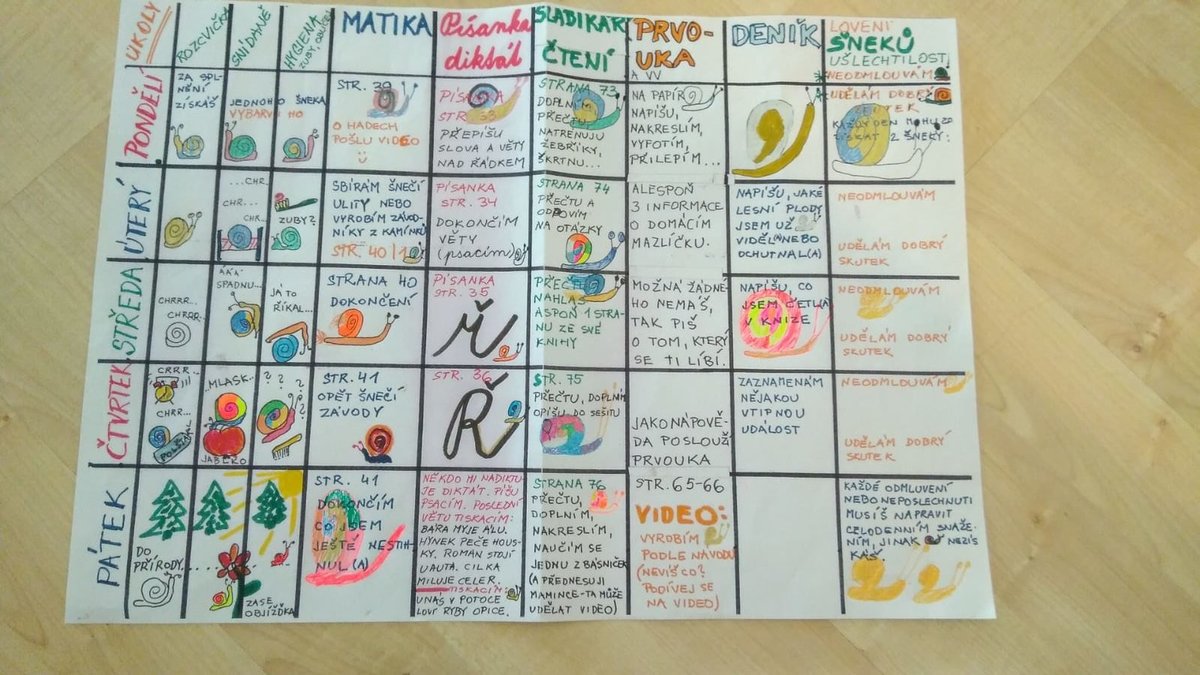 ÚKOLY
ROZCVIČKA
SNÍDANĚ
HYGIENA
ZUBY, OBLIČEJ
MATIKA
Písanka
diktát
SLABIKÁŘ
ČTENÍ
PRVO-
UKA
A VV
DENÍK
LOVENÍ
ŠNEKŮ
UŠLECHTILOSTI
PONDĚLÍ
ZA SPL-
NĚNÍ
ZÍSKÁŠ
JEDNOHO ŠNEKA
VYBARVI HO
STR. 39
O HADECH
POŠLU VIDEO
PÍSANKA
STR. 33
PŘEPÍŠU
SLOVA A VĚTY
NAD ŘÁDKEM
STRANA 73
DOPLNÍM
PŘEČTU
NATRÉNUJU
ŽEBŘÍKY,
ŠKRTNU...
NA PAPÍR
NAPÍŠU,
NAKRESLÍM,
VYFOTÍM,
PŘILEPÍM...
NEODMLOUVÁM
UDĚLÁM DOBRÝ
SKUTEK
KAŽDÝ DEN MOHU ZÍ-
SKAT 2 ŠNEKY:
ÚTERÝ
...CHR..
CHR...
CHR..
ZUBY?
SBÍRÁM ŠNEČÍ
ULITY NEBO
VYROBÍM ZÁVOD-
NÍKY Z KAMÍNKŮ
STR. 40/1
PÍSANKA
STR. 34
DOKONČÍM
VĚTY
(psacím)
STRANA 74
PŘEČTU A
ODPOVÍM
NA OTÁZKY
ALESPOŇ
3 INFORMACE
O DOMÁCÍM
MAZLÍČKU.
NAPÍŠU, JAKÉ
LESNÍ PLODY
JSEM UŽ
VIDĚL/A NEBO
OCHUTNAL(A)
NEODMLOUVÁM
UDĚLÁM DOBRÝ
SKUTEK
STŘEDA
CHRRR...
CHRRR...
ÁÁÁ
SPADNU...
JÁ TO
ŘÍKAL...
STRANA 40
DOKONČENÍ
PÍSANKA
STR. 35
ř
PŘEČTU
NAHLAS
ASPOŇ 1 STRA-
NU ZE SVÉ
KNIHY
MOŽNÁ ŽÁDNÉ-
HO NEMÁŠ,
TAK PIŠ
O TOM, KTERÝ
SE TI LÍBÍ.
NAPÍŠU, CO
JSEM ČETL/A
V KNIZE
NEODMLOUVÁM
UDĚLÁM DOBRÝ
SKUTEK
ČTVRTEK
CRRR...
CHRR...
POLŠTÁŘ
MLASK...
JABLKO
? ? ?
STR. 41
OPĚT ŠNEČÍ
ZÁVODY
STR. 36
Ř
STR. 75
PŘEČTU, DOPLNÍM
OPÍŠU DO SEŠITU
JAKO NÁPOVĚ-
DA POSLOUŽÍ
PRVOUKA
ZAZNAMENÁM
NĚJAKOU
VTIPNOU
UDÁLOST
NEODMLOUVÁM
UDĚLÁM DOBRÝ
SKUTEK
PÁTEK
DO
PŘÍRODY....
ZASE
OBJÍŽĎKA
STR. 41
DOKONČÍM
CO JSEM
JEŠTĚ NESTIH-
NUL (A)
NĚKDO MI NADIKTU-
JE DIKTÁT. PÍŠU
PSACÍM. POSLEDNÍ
VĚTU TISKACÍM:
BÁRA MYJE ALU.
HYNEK PEČE HOUS-
KY. ROMAN STOJÍ
U AUTA. CILKA
MILUJE CELER.
TISKACÍM:
U NÁS V POTOCE
LOVÍ RYBY OPICE.
STRANA 76
PŘEČTU,
DOPLNÍM,
NAKRESLÍM,
NAUČÍM SE
JEDNU Z BÁSNIČEK
(A PŘEDNESU JI
MAMINCE-TA MŮŽE
UDĚLAT VIDEO)
STR. 65-66
VIDEO:
VYROBÍM
PODLE NÁVODU
(NEVÍŠ CO?
PODÍVEJ SE
NA VIDEO)
KAŽDÉ ODMLUVENÍ
NEBO NEPOSLECHNUTÍ
MUSÍŠ NAPRAVIT
CELODENNÍM SNAŽE-
NÍM, JINAK NEZÍS-
KÁŠ.